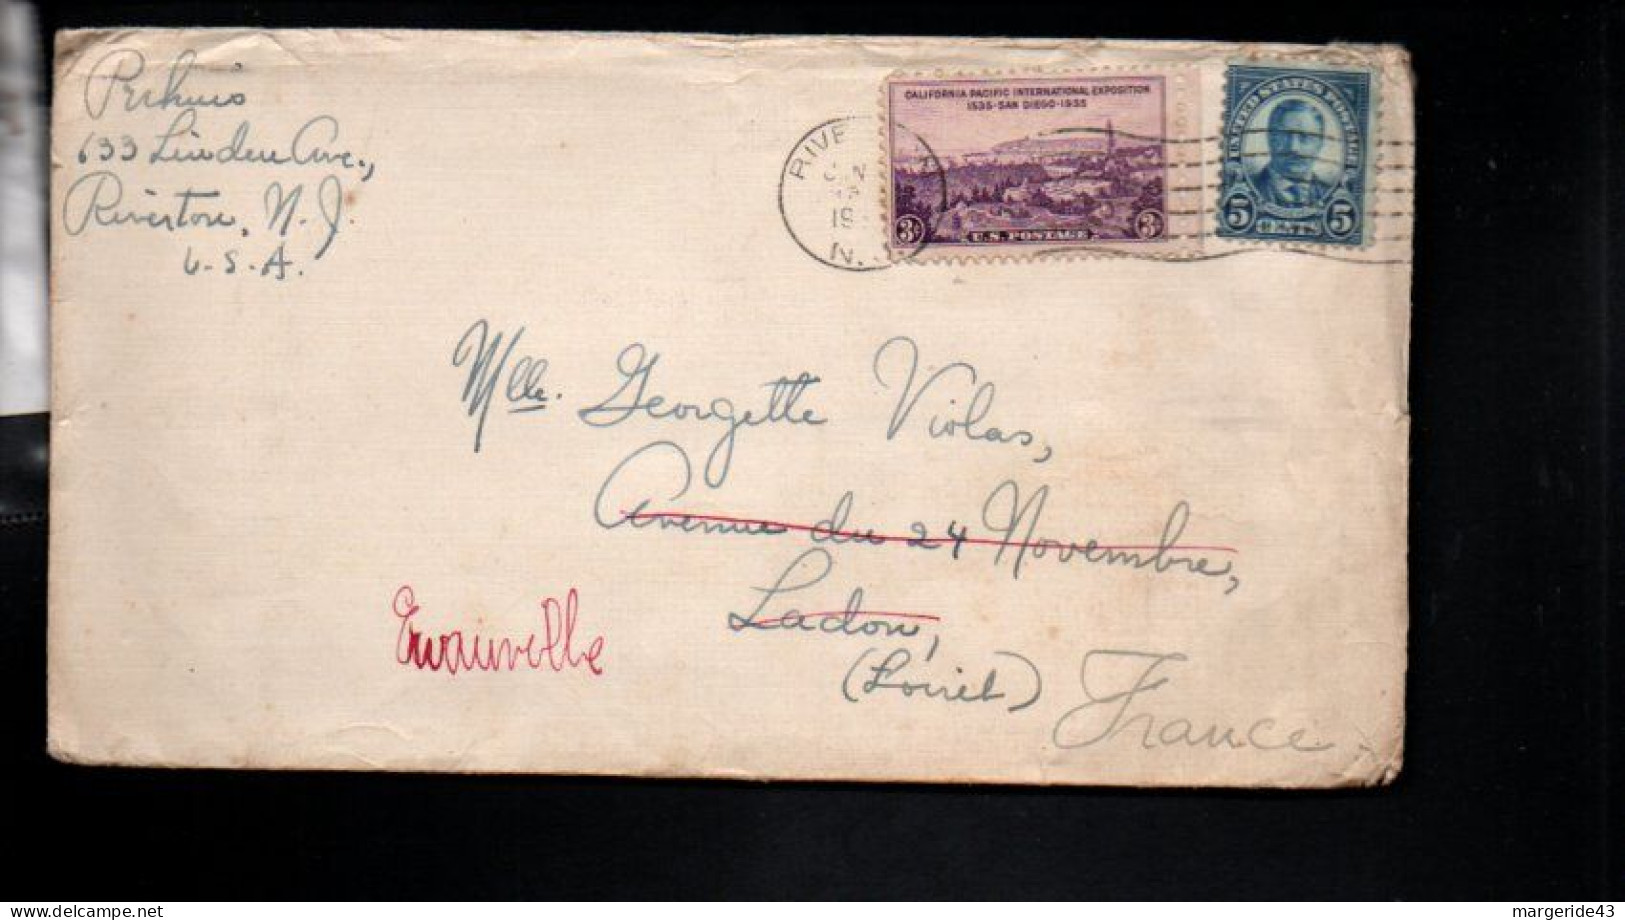 Perkins
633 Linden Ave.,
Riverton, N. J.
U. S. A.
CALIFORNIA PACIFIC INTERNATIONAL EXPOSITION
1535-SAN DIEGO-1935
3¢ 3¢
U.S. POSTAGE
UNITED STATES POSTAGE
5 CENTS 5
RIVE
19
N.
Mlle. Georgette Violas,
Avenue du 24 Novembre,
Ladon,
(Loiret)
France.
margeride43
delcampe.net